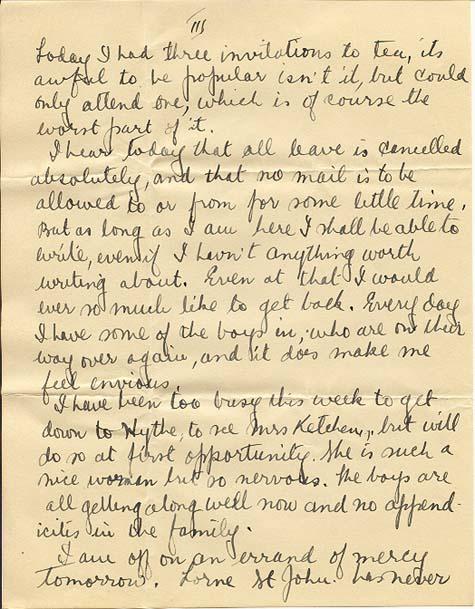 III
Today I had three invitations to tea, its
awful to be popular isn't it, but could
only attend one, which is of course the
worst part of it.
I hear today that all leave is cancelled
absolutely, and that no mail is to be
allowed to or from for some little time.
But as long as I am here I shall be able to
write, even if I havn't anything worth
writing about. Even at that I would
ever so much like to get back. Every day
I have some of the boys in, who are on their
way over again, and it does make me
feel envious.
I have been too busy this week to get
down to Hythe, to see Mrs Ketchem, but will
do so at first opportunity. She is such a
nice woman but so nervous. The boys are
all getting along well now and no append-
icitis in the family.
I am off on an errand of mercy
tomorrow. Lorne St John. has never